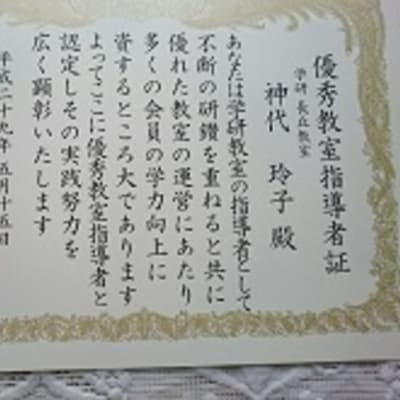 優秀教室指導者証
学研 長丘教室
神代 玲子 殿
あなたは学研教室の指導者として
不断の研鑽を重ねると共に
優れた教室の運営にあたり
多くの会員の学力向上に
資するところ大であります
よってここに優秀教室指導者と
認定しその実践努力を
広く顕彰いたします
平成二十九年 五月十五日